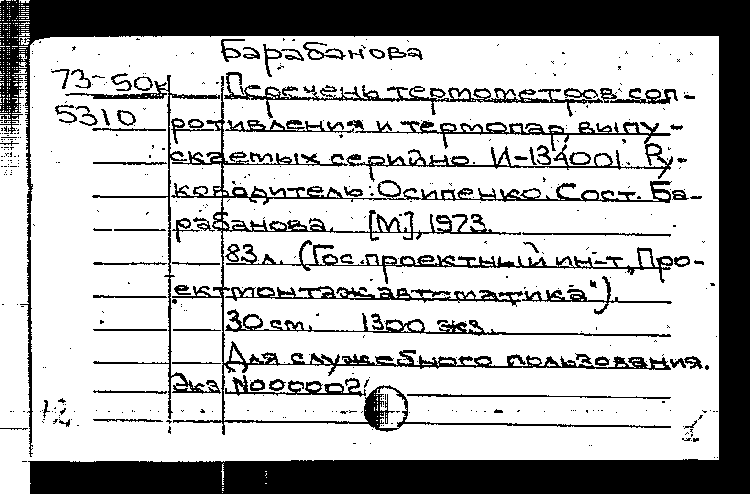 Барабанова
73-50к Перечень термометров соп-
5310 ротивления и термопар, выпу-
скаемых серийно. И-134001. Ру-
ководитель: Осипенко. Сост. Ба-
рабанова. [М.], 1973.
83 л. (Гос. проектный ин-т „Про-
ектмонтажавтоматика").
30 см. 1300 экз.
Для служебного пользования.
Экз N000002
12